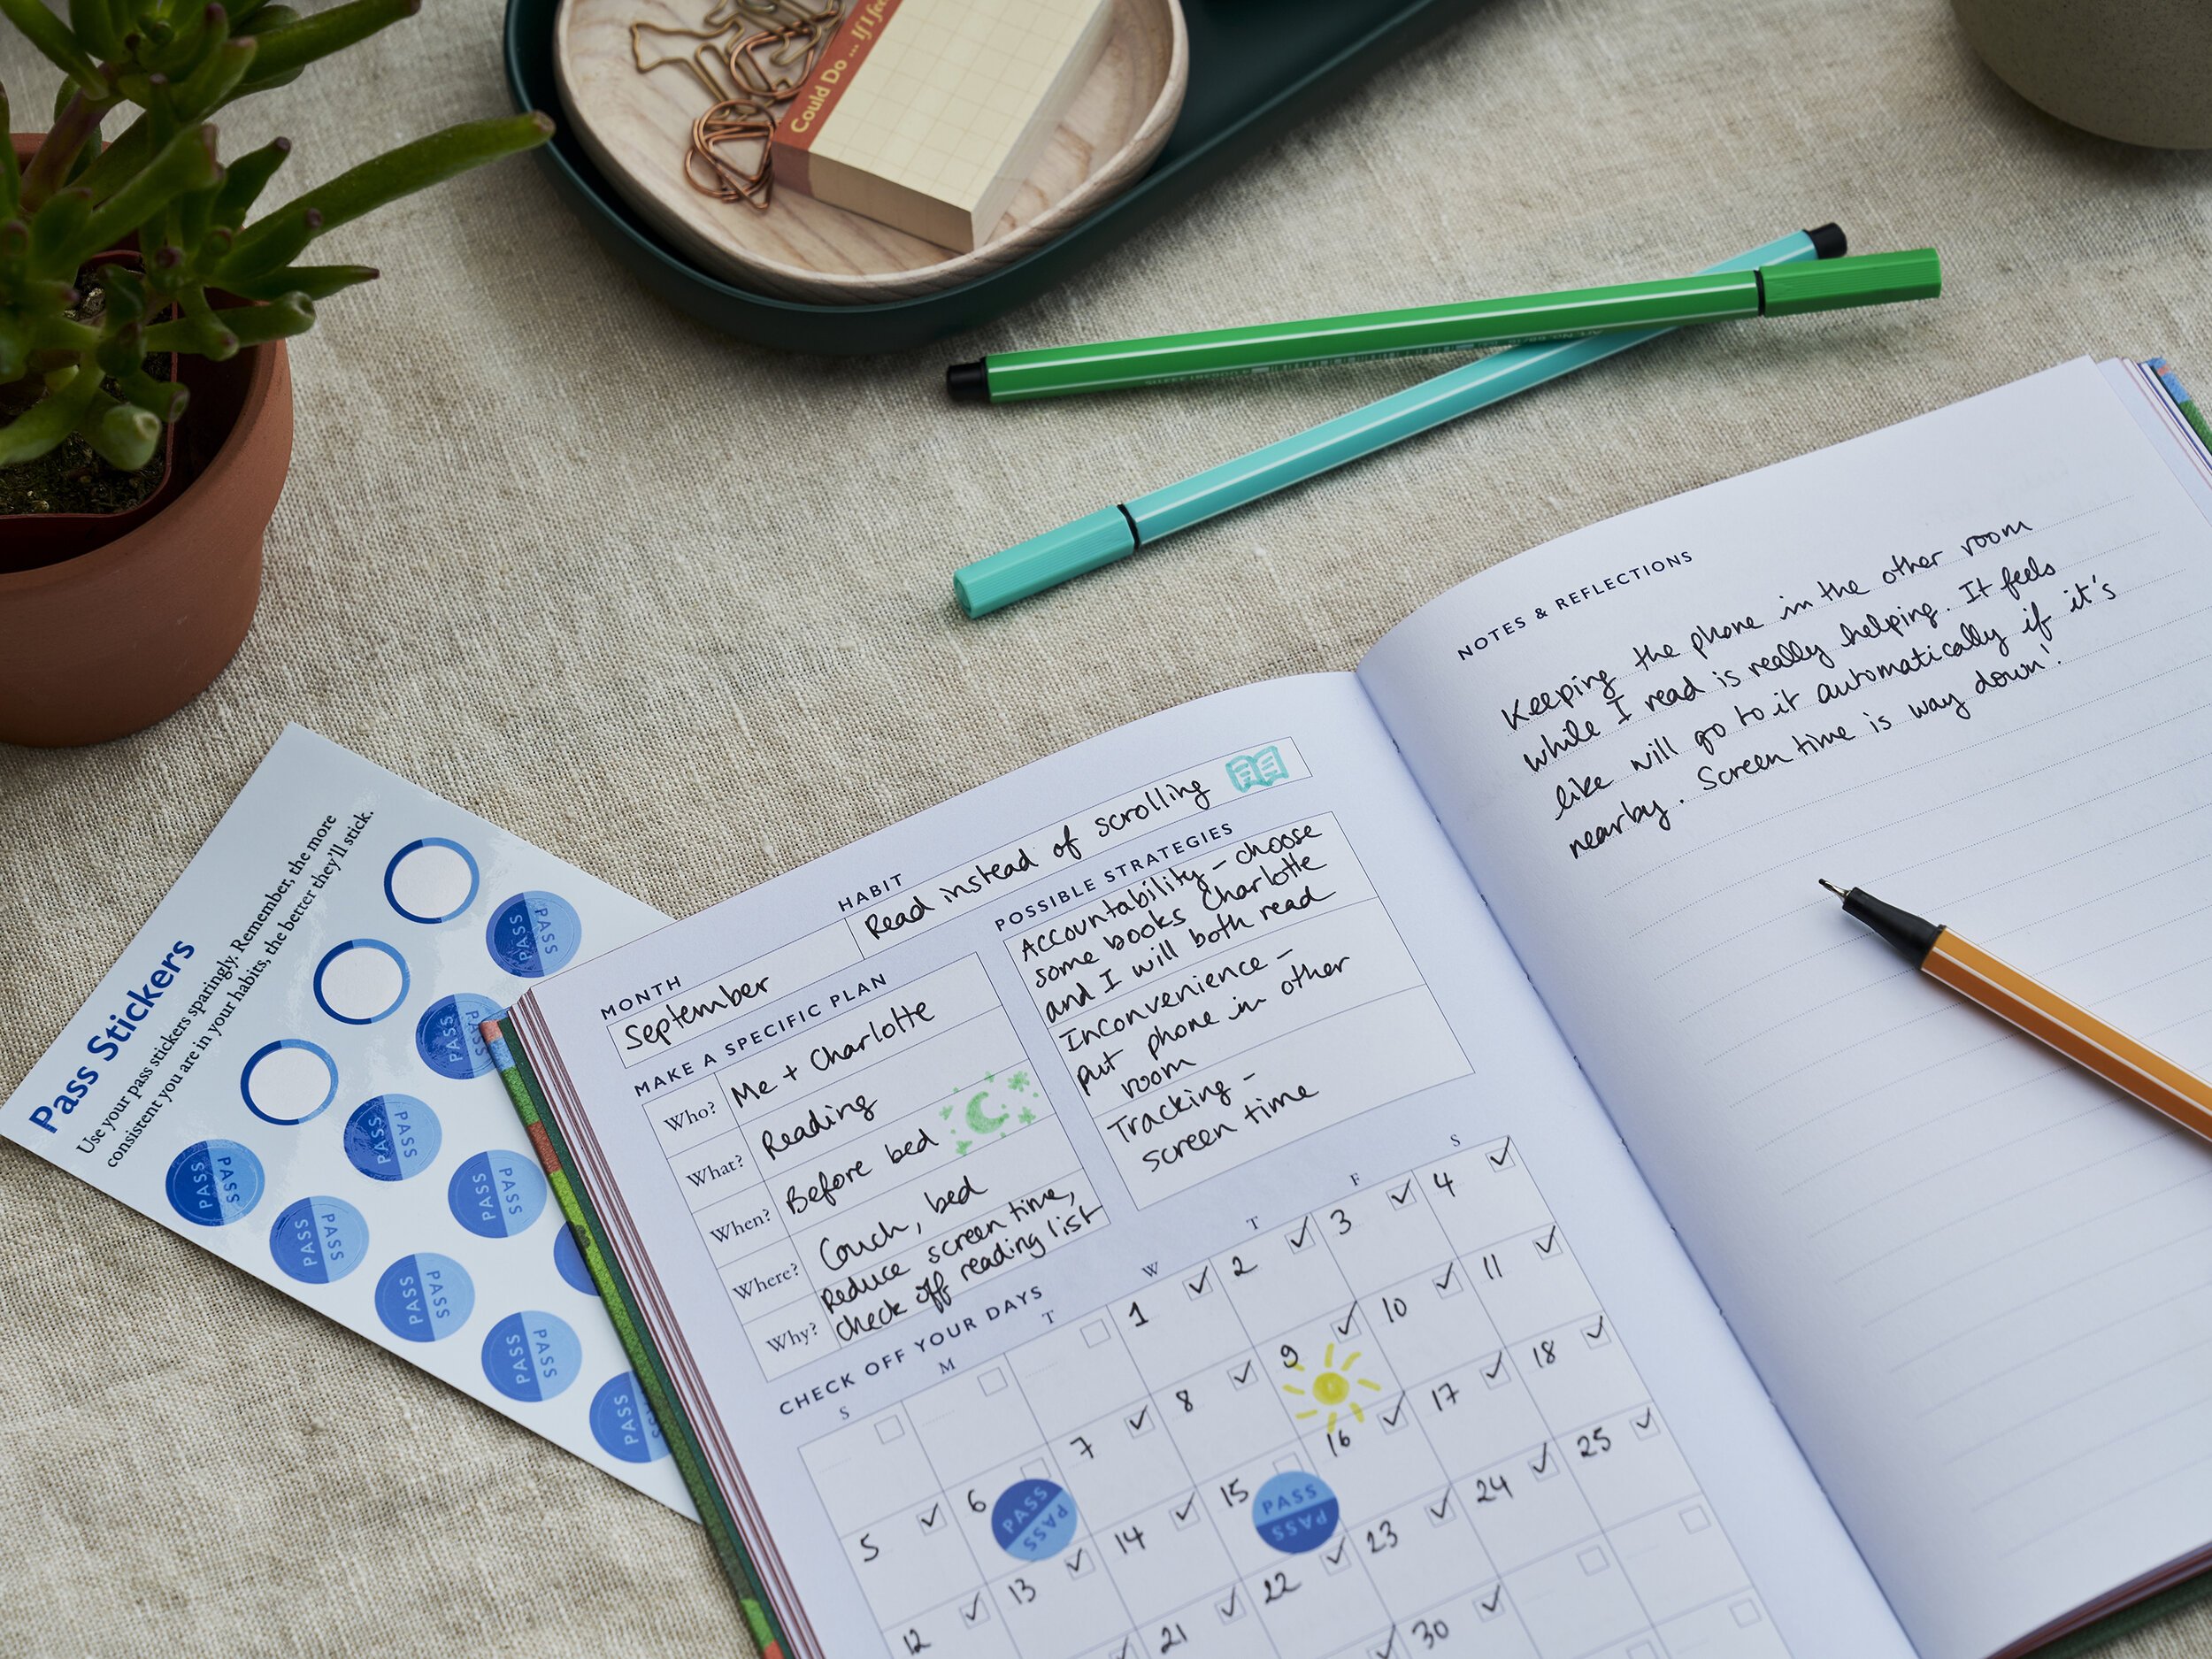 Could Do ... If I feel
Pass Stickers
Use your pass stickers sparingly. Remember, the more
consistent you are in your habits, the better they'll stick.
PASS PASS
PASS PASS
PASS PASS
PASS PASS
PASS PASS
PASS PASS
PASS PASS
PASS PASS
PASS
MONTH
September
HABIT
Read instead of scrolling
MAKE A SPECIFIC PLAN
Who? Me + Charlotte
What? Reading
When? Before bed
Where? Couch, bed
Why? Reduce screen time,
check off reading list
POSSIBLE STRATEGIES
Accountability - choose
some books Charlotte
and I will both read
Inconvenience -
put phone in other
room
Tracking -
screen time
CHECK OFF YOUR DAYS
S M T W T F S
1 2 3 4
5 6 PASS PASS 7 8 9 10 11
12 13 14 15 PASS PASS 16 17 18
21 22 23 24 25
30
NOTES & REFLECTIONS
Keeping the phone in the other room
while I read is really helping. It feels
like will go to it automatically if it's
nearby. Screen time is way down!